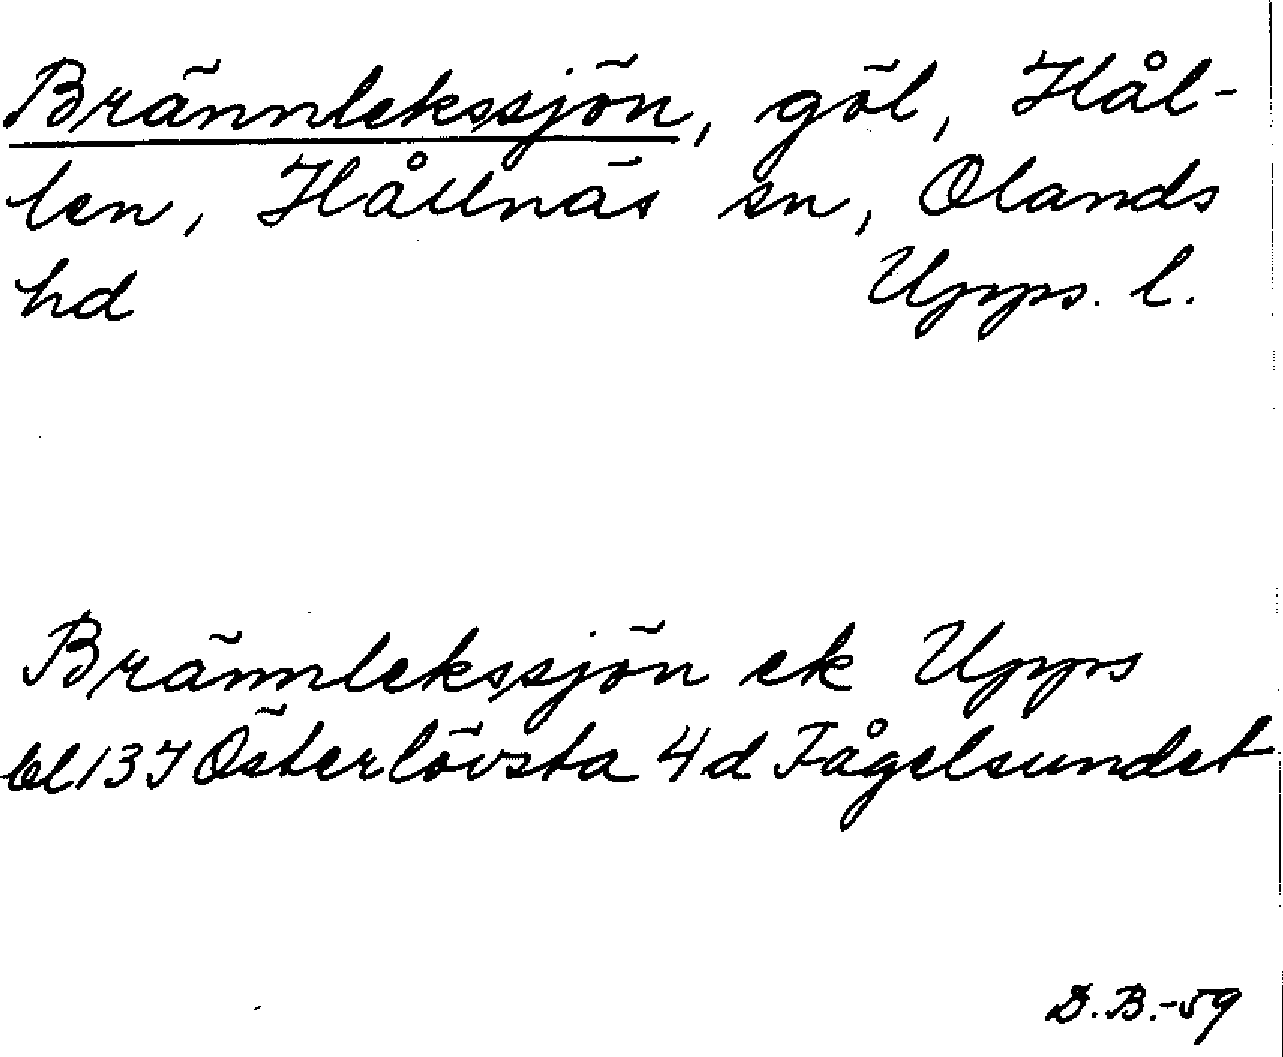 Brännlekssjön, göl, Hål-
len, Hållnäs sn, Olands
hd Upps. l.
Brännlekssjön ek Upps
bl 13 I Österlövsta 4 d Fågelsundet
B.-59